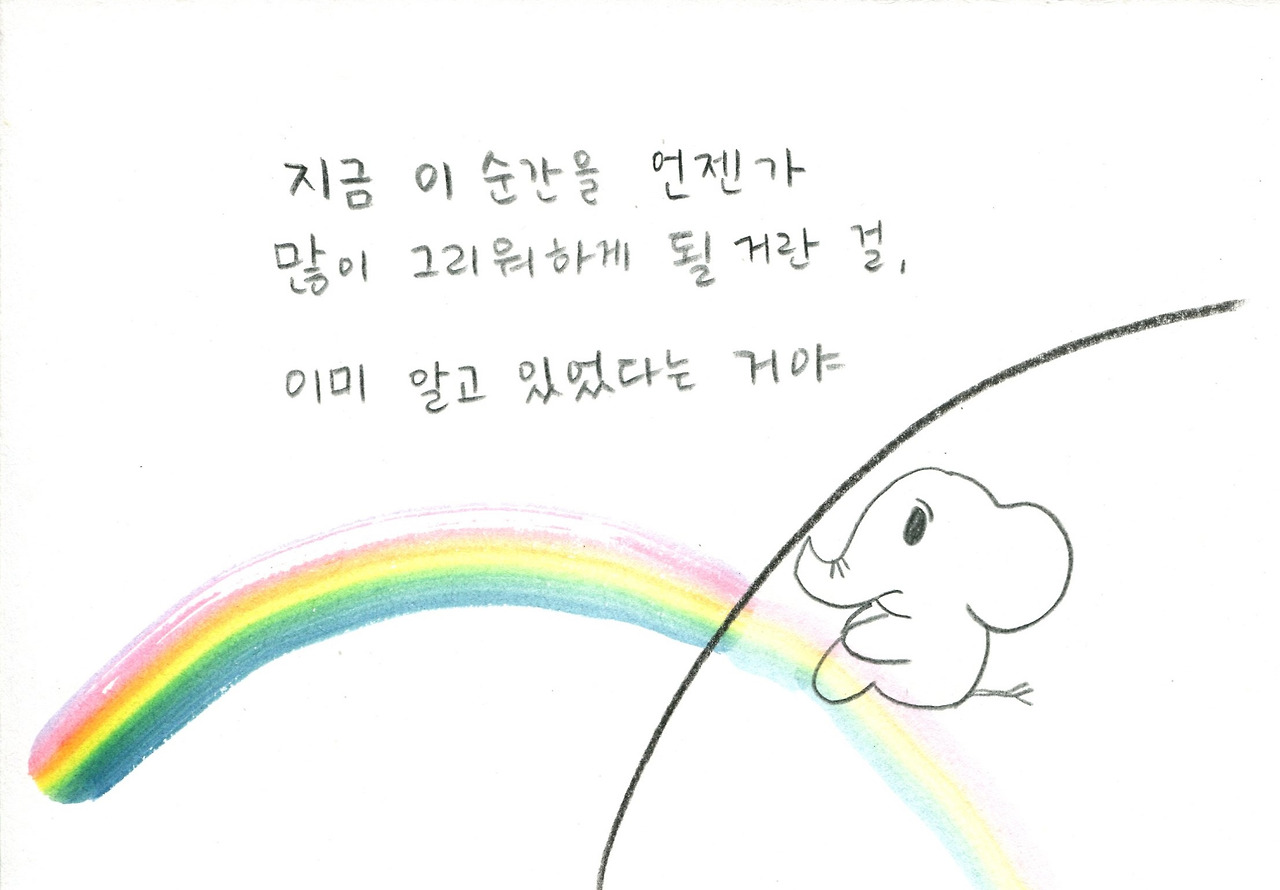 지금 이 순간을 언젠가
많이 그리워하게 될 거란 걸,
이미 알고 있었다는 거야